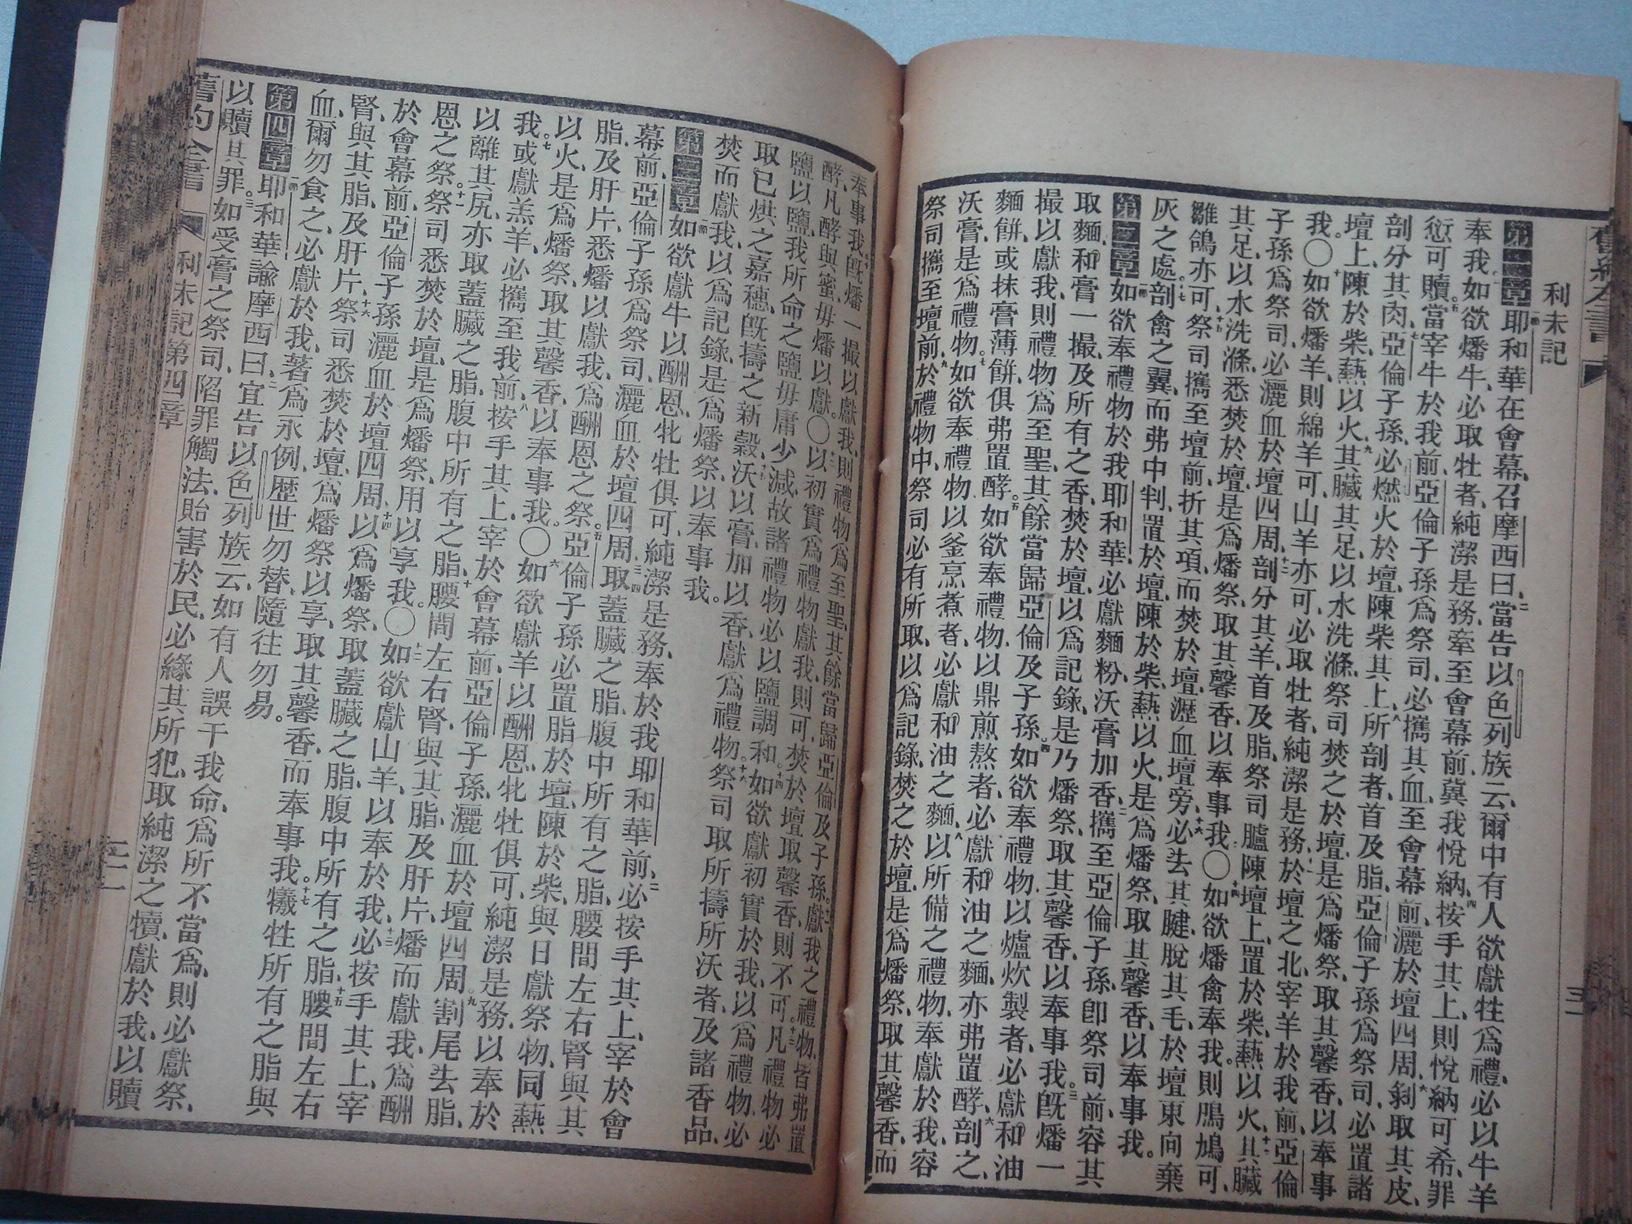 利未記
第一章耶和華在會幕、召摩西曰、當告以色列族云、爾中有人欲獻牲爲禮、必以牛羊
奉我、如欲燔牛、必取牡者、純潔是務、牽至會幕前、冀我悅納、按手其上、則悅納可希、罪
愆可贖、當宰牛於我前、亞倫子孫爲祭司、必攜其血至會幕前、灑於壇四周、剝取其皮、
剖分其肉、亞倫子孫、必燃火於壇、陳柴其上、所剖者首及脂、亞倫子孫爲祭司、必置諸
壇上、陳於柴、爇以火、其臟其足、以水洗滌、祭司焚之於壇、是爲燔祭、取其馨香、以奉事
我、〇如欲燔羊、則綿羊可、山羊亦可、必取牡者、純潔是務、於壇之北、宰羊於我前、亞倫
子孫爲祭司、必灑血於壇四周、剖分其羊、首及脂、祭司臚陳壇上、置於柴、爇以火、其臟
其足、以水洗滌、悉焚於壇、是爲燔祭、取其馨香、以奉事我、〇如欲燔禽奉我。則鳲鳩可、
雛鴿亦可、祭司攜至壇前、折其項、而焚於壇、瀝血壇旁、必去其腱、脫其毛、於壇東向棄
灰之處、剖禽之翼、而弗中判、置於壇、陳於柴、爇以火、是爲燔祭、取其馨香、以奉事我。
第二章如欲奉禮物於我耶和華、必獻麵粉、沃膏加香、攜至亞倫子孫、卽祭司前、容其
取麵、和膏一撮、及所有之香、焚於壇、以爲記錄、是乃燔祭、取其馨香、以奉事我、旣燔一
撮以獻我、則禮物爲至聖、其餘當歸亞倫及子孫、如欲奉禮物、以爐炊製者、必獻和油
麵餅、或抹膏薄餅、俱弗置酵、如欲奉禮物、以鼎煎熬者、必獻和油之麵、亦弗置酵、剖之、
沃膏、是爲禮物、如欲奉禮物、以釜烹煮者、必獻和油之麵、以所備之禮物、奉獻於我、容
祭司攜至壇前、於禮物中、祭司必有所取、以爲記錄、焚之於壇、是爲燔祭、取其馨香、而
奉事我、旣燔一撮以獻我、則禮物爲至聖、其餘當歸亞倫及子孫、獻我之禮物、皆弗置
酵、凡酵與蜜、毋燔以獻、〇以初實爲禮物獻我、則可、焚於壇、取馨香、則不可、凡禮物必
鹽以鹽、我所命之鹽、毋庸少減、故諸禮物、必以鹽調和、如欲獻初實於我、以爲禮物、必
取已烘之嘉穗、旣擣之新穀、沃以膏、加以香、獻爲禮物、祭司取所擣所沃者、及諸香品、
焚而獻我、以爲記錄、是爲燔祭、以奉事我。
第三章如欲獻牛以酬恩、牝牡俱可、純潔是務、奉於我耶和華前、必按手其上、宰於會
幕前、亞倫子孫爲祭司、灑血於壇四周、取蓋臟之脂、腹中所有之脂、腰間左右腎與其
脂、及肝片、悉燔以獻我、爲酬恩之祭。亞倫子孫、必置脂於壇、陳於柴、與日獻祭物、同爇
以火、是爲燔祭、取其馨香、以奉事我。〇如欲獻羊以酬恩、牝牡俱可、純潔是務、以奉於
我。或獻羔羊、必攜至我前、按手其上、宰於會幕前、亞倫子孫、灑血於壇四周、割尾去脂、
以離其尻、亦取蓋臟之脂、腹中所有之脂、腰間左右腎、與其脂、及肝片、燔而獻我、爲酬
恩之祭、祭司悉焚於壇、是爲燔祭、用以享我。〇如欲獻山羊、以奉於我、必按手其上、宰
於會幕前、亞倫子孫灑血於壇四周、以爲燔祭、取蓋臟之脂、腹中所有之脂、腰間左右
腎、與其脂、及肝片、祭司悉焚於壇、爲燔祭以享、取其馨香、而奉事我、犧牲所有之脂與
血、爾勿食之、必獻於我、著爲永例、歷世勿替、隨往勿易。
第四章耶和華諭摩西曰、宜告以色列族云、如有人誤干我命、爲所不當爲、則必獻祭、
以贖其罪、如受膏之祭司、陷罪觸法、貽害於民、必緣其所犯、取純潔之犢、獻於我、以贖
舊約全書
利未記第四章